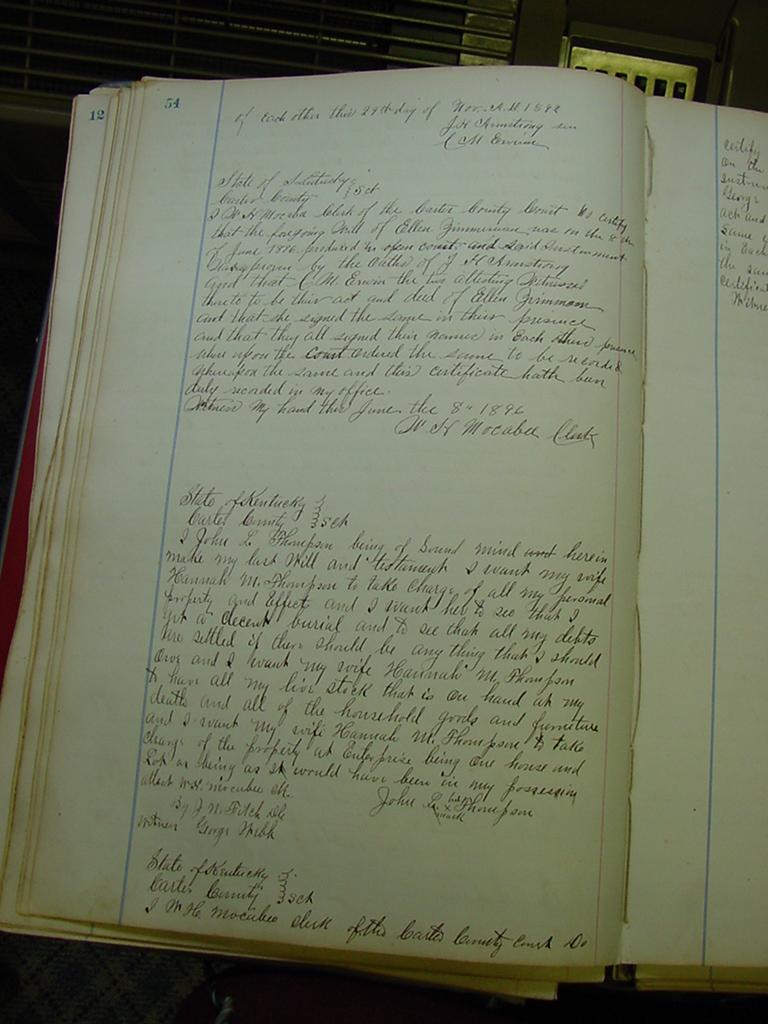 12
54
of each other this 29th day of Nov. A.D 1892
J. H Armstrong sen
C M Erwin
State of Kentucky
Carter County } Sct
I W H Mocabee Clerk of the Carter County Court do certify
that the foregoing Will of Ellen Zimmerman was on the 8th
of June 1896 produced in open court and said instrument
was proven by the Oaths of J H Armstrong
and that C. M. Erwin the two attesting Witnesses
thereto to be their act and deed of Ellen Zimmerman
and that she signed the same in their presence
and that they all signed their names in Each other presence
where upon the Court ordered the same to be recorded
whereupon the same and this certificate hath been
duly recorded in my office.
Witness My hand this June the 8" 1896
W. H Mocabee Clerk
State of Kentucky
Carter County } Sct
I John L. Thompson being of Sound mind herein
make my last Will and testament I want my wife
Hannah M. Thompson to take Charge of all my personal
property and Effect and I want her to see that I
get a decent burial and to see that all my debts
are settled if there should be any thing that I should
owe and I want my wife Hannah M. Thompson
to have all my live stock that is on hand at my
death and all of the household goods and furniture
and I want my wife Hannah M. Thompson to take
charge of the property at Enterprise being One house and
Lot as being as it would have been in my possession
attest W.H. Mocabee Clk. John L. his x mark Thompson
By J. N. Fitch D.C.
Witness George Webb
State of Kentucky
Carter County } Sct
I W. H. Mocabee Clerk of the Carter County Court Do
certify
on the
instrum
George
act and
same
in Each
the sam
certificat
Witnes